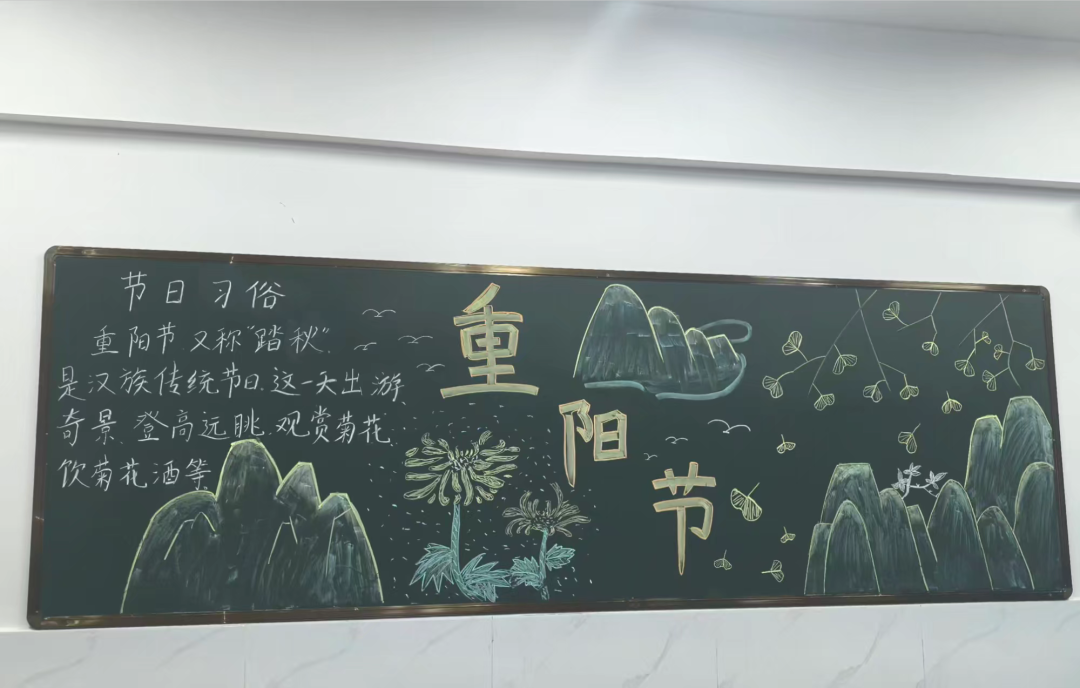 节日习俗
重阳节又称"踏秋".
是汉族传统节日.这一天出游
奇景、登高远眺.观赏菊花
饮菊花酒等
重
阳
节